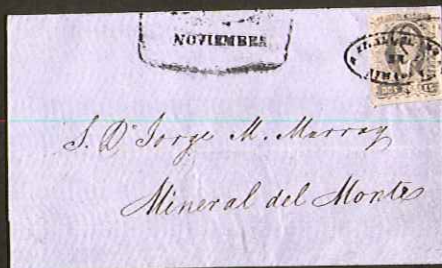 NOVIEMBRE
S. Dⁿ Jorge M. Murray
Mineral del Monte